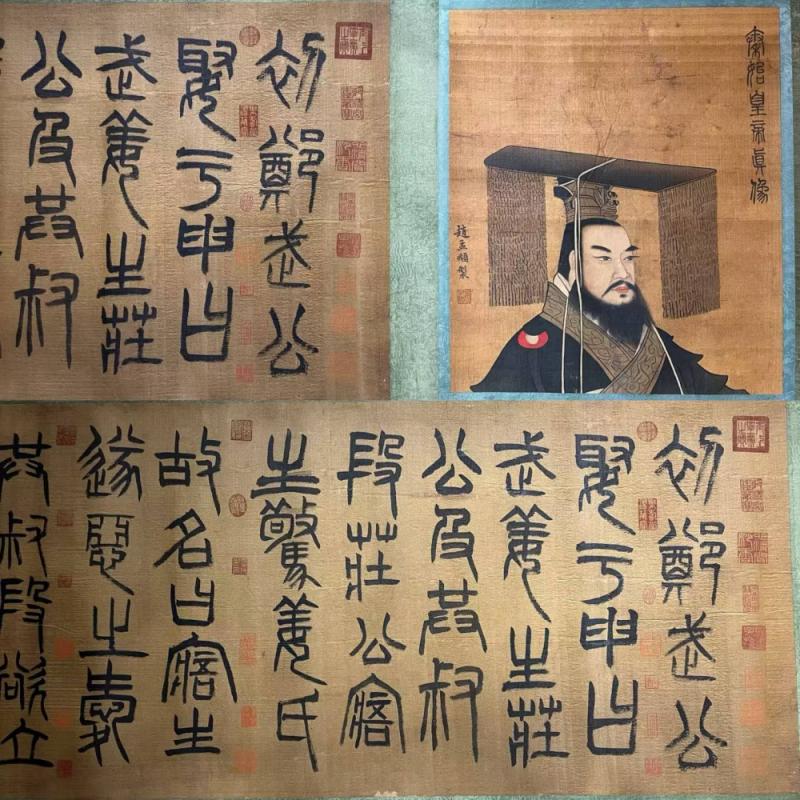 初鄭武公
娶于申曰
武姜生莊
公及共叔
秦始皇帝眞像
趙孟頫製
初鄭武公
娶于申曰
武姜生莊
公及共叔
段莊公寤
生驚姜氏
故名曰寤生
遂惡之愛
共叔段欲立